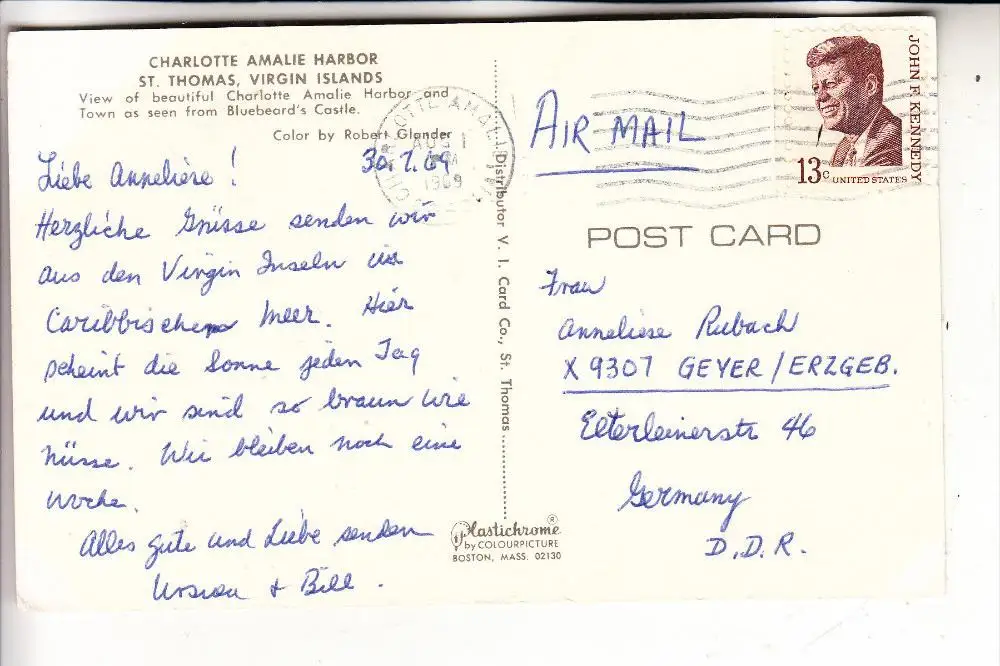 CHARLOTTE AMALIE HARBOR
ST. THOMAS, VIRGIN ISLANDS
View of beautiful Charlotte Amalie Harbor and
Town as seen from Bluebeard's Castle.
Color by Robert Glander
30.7.69
Liebe Anneliese!
Herzliche Grüsse senden wir
aus den Virgin Inseln im
Caribbischen Meer. Hier
scheint die Sonne jeden Tag
und wir sind so braun wie
Nüsse. Wir bleiben noch eine
Woche.
Alles gute und Liebe senden
& Bill.
Distributor V. I. Card Co., St. Thomas
Plastichrome®
by COLOURPICTURE
BOSTON, MASS. 02130
AUG 1
1969
AIR MAIL
JOHN F. KENNEDY
13c UNITED STATES
POST CARD
Frau
Anneliese Rubach
X 9307 GEYER/ERZGEB.
Elterleinerstr 46
Germany
D.D.R.